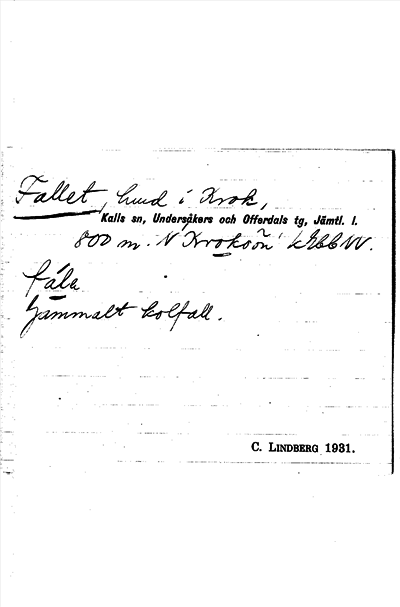 Fallet, hud i Krok,
Kalls sn, Undersåkers och Offerdals tg, Jämtl. l.
800 m. N Kroksön
fála
Gammalt kolfall.
C. LINDBERG 1931.